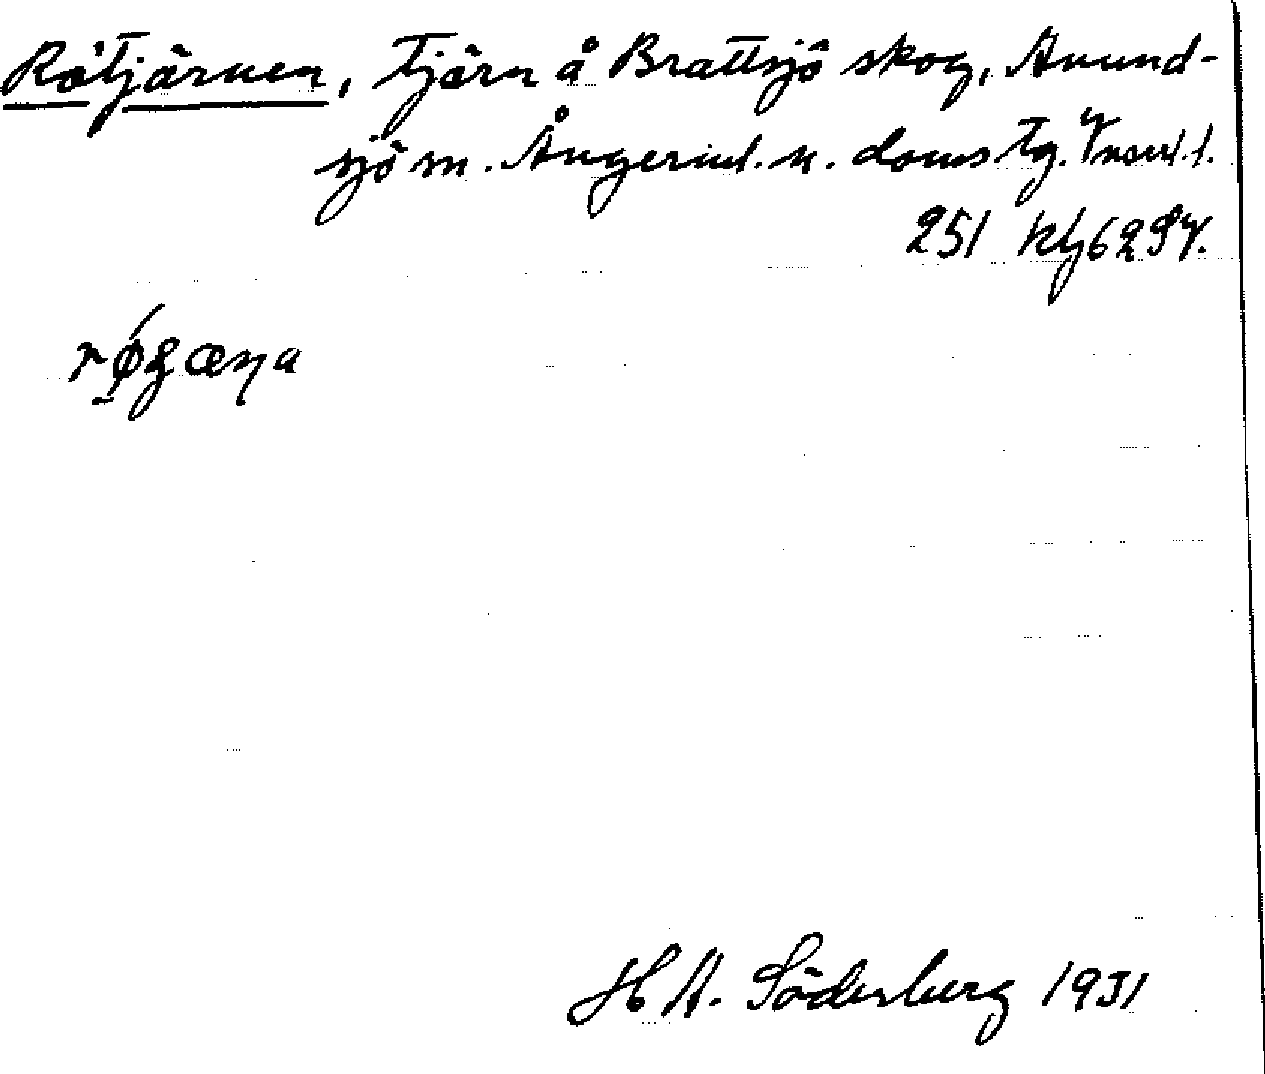 Rötjärnen, tjärn å Brattsjö skog, Anund-
sjö sn. Ångerml. n. doms tg. Vnorrl. l.
251 kg 6297.
røʒæɳa
H A. Söderberg 1931